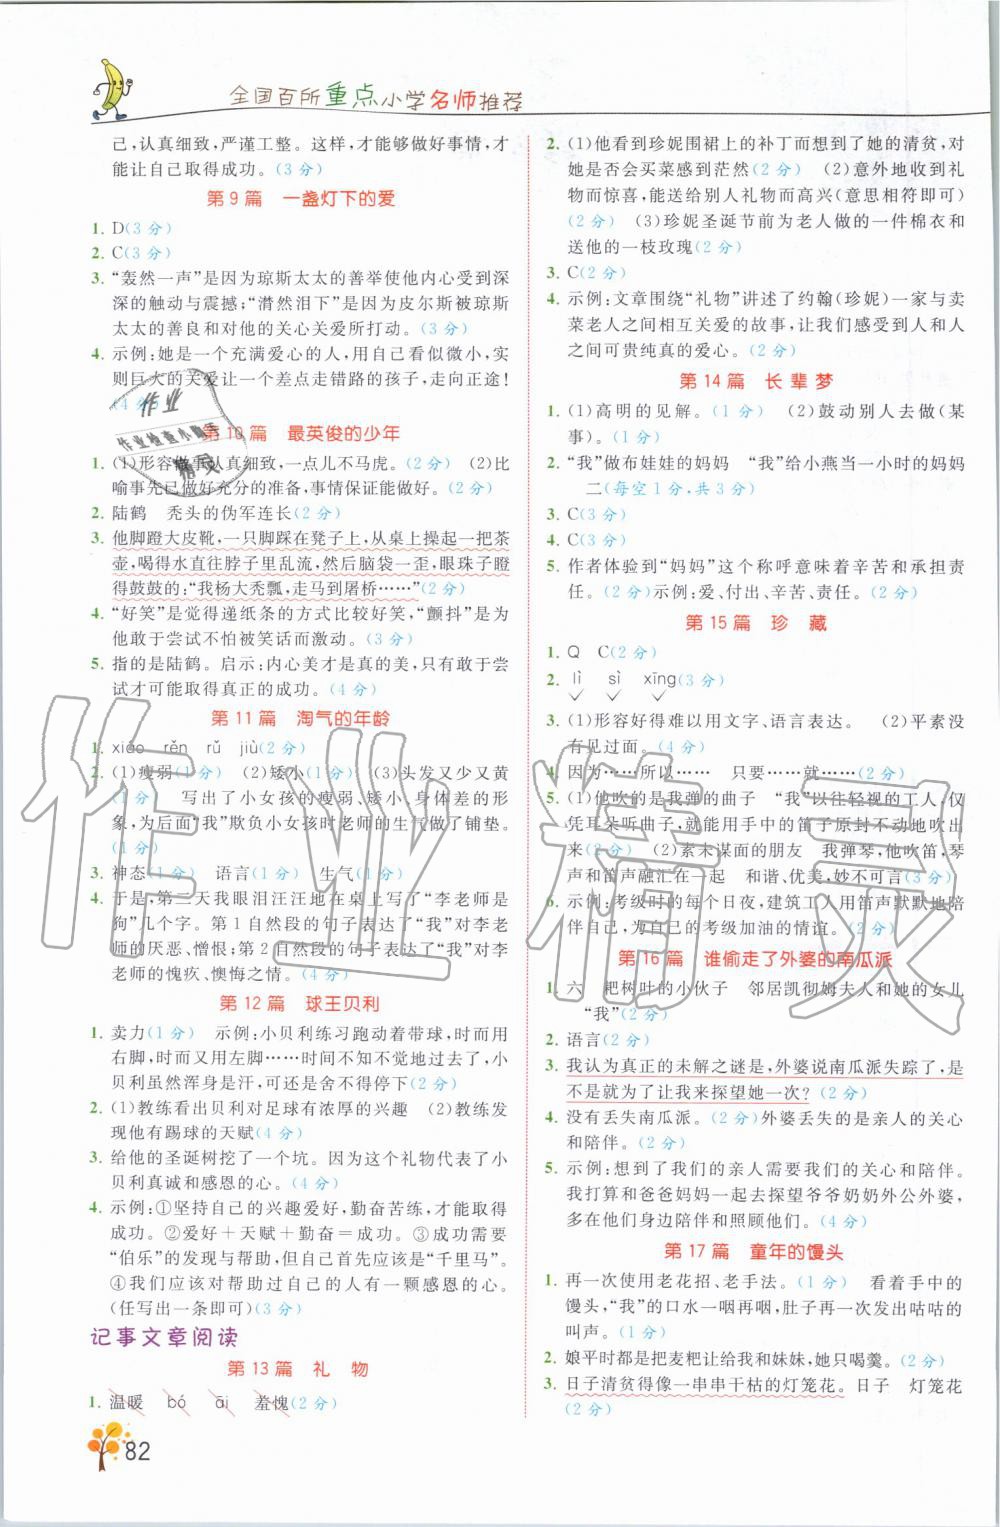 全国百所重点小学名师推荐
己,认真细致,严谨工整。这样,才能够做好事情,才
能让自己取得成功。(3分)
第9篇 一盏灯下的爱
1. D(3分)
2. C(3分)
3. “轰然一声”是因为琼斯太太的善举使他内心受到深
深的触动与震撼;“潸然泪下”是因为皮尔斯被琼斯
太太的善良和对他的关心关爱所打动。(3分)
4. 示例:她是一个充满爱心的人,用自己看似微小,实
则巨大的关爱让一个差点走错路的孩子,走向正途!
(4分)
第10篇 最英俊的少年
1. (1)形容做事认真细致,一点儿不马虎。(2分) (2)比
喻事先已做好充分的准备,事情保证能做好。(2分)
2. 陆鹤 秃头的伪军连长(2分)
3. 他脚蹬大皮靴,一只脚踩在凳子上,从桌上操起一把茶
壶,喝得水直往脖子里乱流,然后脑袋一歪,眼珠子瞪
得鼓鼓的;“我杨大秃瓢,走马到屠桥……”(2分)
4. “好笑”是觉得递纸条的方式比较好笑,“颤抖”是为
他敢于尝试不怕被笑话而激动。(3分)
5. 指的是陆鹤。启示:内心美才是真的美,只有敢于尝
试才可能取得真正的成功。(4分)
第11篇 淘气的年龄
1. xiāo rěn rǔ jiù(2分)
2. (1)瘦弱(1分) (2)矮小(1分) (3)头发又少又黄
(1分) 写出了小女孩的瘦弱、矮小,身体差的形
象,为后面“我”欺负小女孩时老师的生气做了铺垫。
(1分)
3. 神态(1分) 语言(1分) 生气(1分)
4. 于是,第二天我眼泪汪汪地在桌上刻写了“李老师是
狗”几个字。第1自然段的句子表达了“我”对李老
师的厌恶、憎恨;第2自然段的句子表达了“我”对李
老师的愧疚、懊悔之情。(4分)
第12篇 球王贝利
1. 卖力(1分) 示例:小贝利练习跑动着带球,时而用
右脚,时而又用左脚……时间不知不觉地过去,小
贝利虽然浑身是汗,可还是舍不得停下(2分)
2. (1)教练看出贝利对足球有浓厚的兴趣 (2)教练发
现他有踢球的天赋(4分)
3. 给他的圣诞树挖了一个坑。因为这个礼物代表了小
贝利真诚和感恩的心。(4分)
4. 示例:①坚持自己的兴趣爱好,勤奋苦练,才能取得
成功。②爱好＋天赋＋勤奋＝成功。③成功需要
“伯乐”的发现与帮助,但自己首先应该是“千里马”。
④我们应该对帮助过自己的人有一颗感恩的心。
(任写出一条即可)(3分)
记事文章阅读
第13篇 礼 物
1. 温暖 bó āi 羞愧(2分)
82
2. (1)他看到珍妮围裙上的补丁而想到了她的清贫,对
她是否会买菜感到茫然(2分) (2)意外地收到礼
物而惊喜,能送给别人礼物而高兴(意思相符即可)
(2分) (3)珍妮圣诞节前为老人做的一件棉衣和
送他的一枝玫瑰(2分)
3. C(2分)
4. 示例:文章围绕“礼物”讲述了约翰(珍妮)一家与卖
菜老人之间相互关爱的故事,让我们感受到人和人
之间可贵纯真的爱心。(2分)
第14篇 长辈梦
1. (1)高明的见解。(1分) (2)鼓动别人去做(某
事)。(1分)
2. “我”做布娃娃的妈妈 “我”给小燕当一小时的妈妈
二(每空1分,共3分)
3. C(3分)
4. C(3分)
5. 作者体验到“妈妈”这个称呼意味着辛苦和承担责
任。(2分)示例:爱、付出、辛苦、责任。(2分)
第15篇 珍 藏
1. Q C(2分)
2. lì sì xīng(3分)
3. (1)形容好得难以用文字、语言表达。 (2)平素没
有见过面。(4分)
4. 因为……所以…… 只要……就……(2分)
5. (1)他吹的是我弹的曲子 “我”以往轻视的工人,仅
凭耳朵听曲子,就能用手中的笛子原封不动地吹出
来(2分) (2)素未谋面的朋友 我弹琴,他吹笛,琴
声和笛声融汇在一起 和谐,优美,妙不可言(3分)
6. 示例:考级时的每个夜晚,建筑工人用笛声默默地陪
伴自己,为自己的考级加油的情谊。(2分)
第16篇 谁偷走了外婆的南瓜派
1. 六 耙树叶的小伙子 邻居凯彻姆夫人和她的女儿
“我”(2分)
2. 语言(2分)
3. 我认为真正的未解之谜是,外婆说南瓜派失踪了,是
不是就为了让我来探望她一次?(2分)
4. 没有丢失南瓜派。(2分)外婆丢失的是亲人的关心
和陪伴。(2分)
5. 示例:想到了我们的亲人需要我们的关心和陪伴。
我打算和爸爸妈妈一起去探望爷爷奶奶外公外婆,
多在他们身边陪伴和照顾他们。(4分)
第17篇 童年的馒头
1. 再一次施展老花招、老手法。(1分) 看着手中的
馒头,“我”的口水一咽再咽,肚子再次发出咕咕的
叫声。(1分)
2. 娘平时都是把麦粑让给我和妹妹,她只喝羹。(2分)
3. 日子清贫得像一串串干枯的灯笼花。日子 灯笼花
(2分)
作业
作业检查小助手
精灵
作业精灵